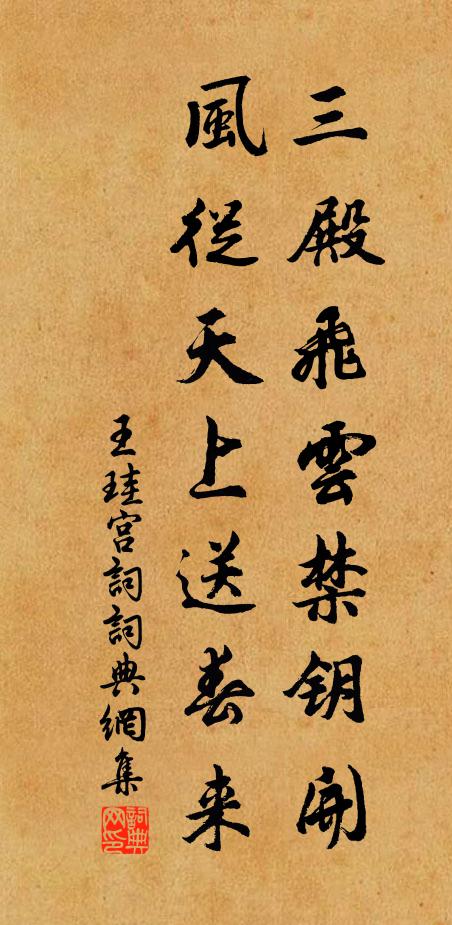 三殿飛雲禁钥開
風從天上送春来
王珪宮詞詞典網集
詞典網印